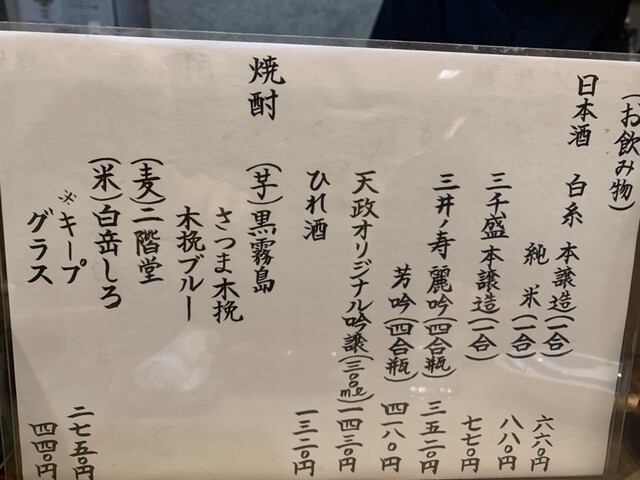 (お飲み物)
日本酒 白糸 本譲造(一合) 六六〇円
純米(一合) 八八〇円
三千盛 本譲造(一合) 七七〇円
三井ノ寿 麗吟(四合瓶) 三五二〇円
芳吟(四合瓶) 四一八〇円
天政オリジナル吟譲(三〇〇㎖) 一四三〇円
ひれ酒 一三二〇円
焼酎 (芋)黒霧島
さつま木挽
木挽ブルー
(麦)二階堂
(米)白岳しろ
※キープ 二七五〇円
グラス 四四〇円